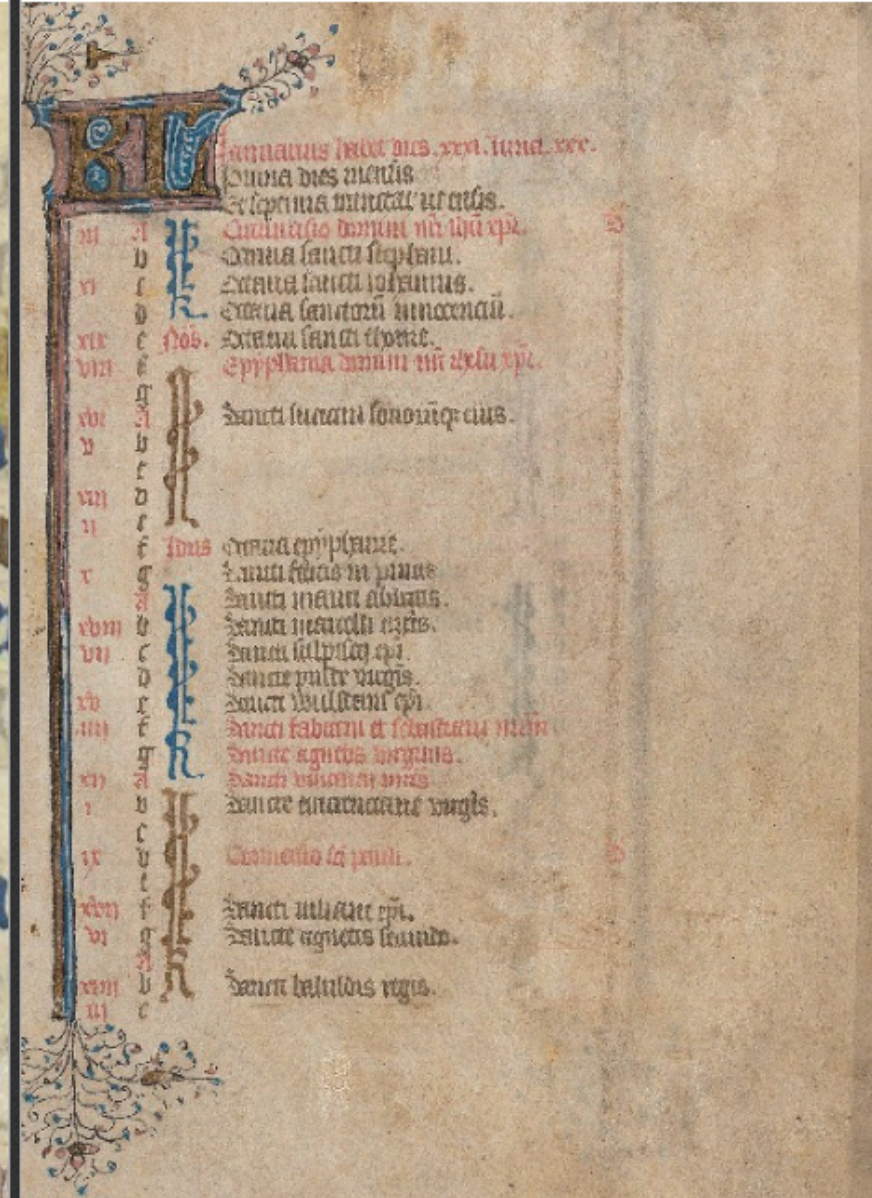 KL Januarius habet dies .xxxi. luna .xxx.
Prima dies mensis
Et septima truncat ut ensis.
iii A Circumcisio domini nr̄i ihū xp̄i. D
b Octava sancti stephani.
xi c Octava sancti iohannis.
d k Octava sanctorū innocenciū.
xix e Nōs. Octava sancti thome.
viii f Epyphania domini nr̄i ihesu xp̄i.
g
xvi A Sancti luciani sociorūq; eius.
v b
c
xiii d
ii e
f Idus Octava epyphanie.
x g Sancti felicis in pincis
A Sancti mauri abbatis.
xviii b Sancti marcelli
vii c Sancti sulpicij ep̄i.
d Sancte virgīs.
xv e Sancti Wulstani ep̄i.
iiii f Sancti fabiani et sebastiani
g Sancte agnetis virginis.
xii A k Sancti vincencij
i b Sancte emerenciane virgīs.
c
ix d Conversio sc̄i pauli. D
e
xvii f Sancti iuliani ep̄i.
vi g Sancte agnetis secundo.
A
xiiii b k Sancti batildis regis.
iii c